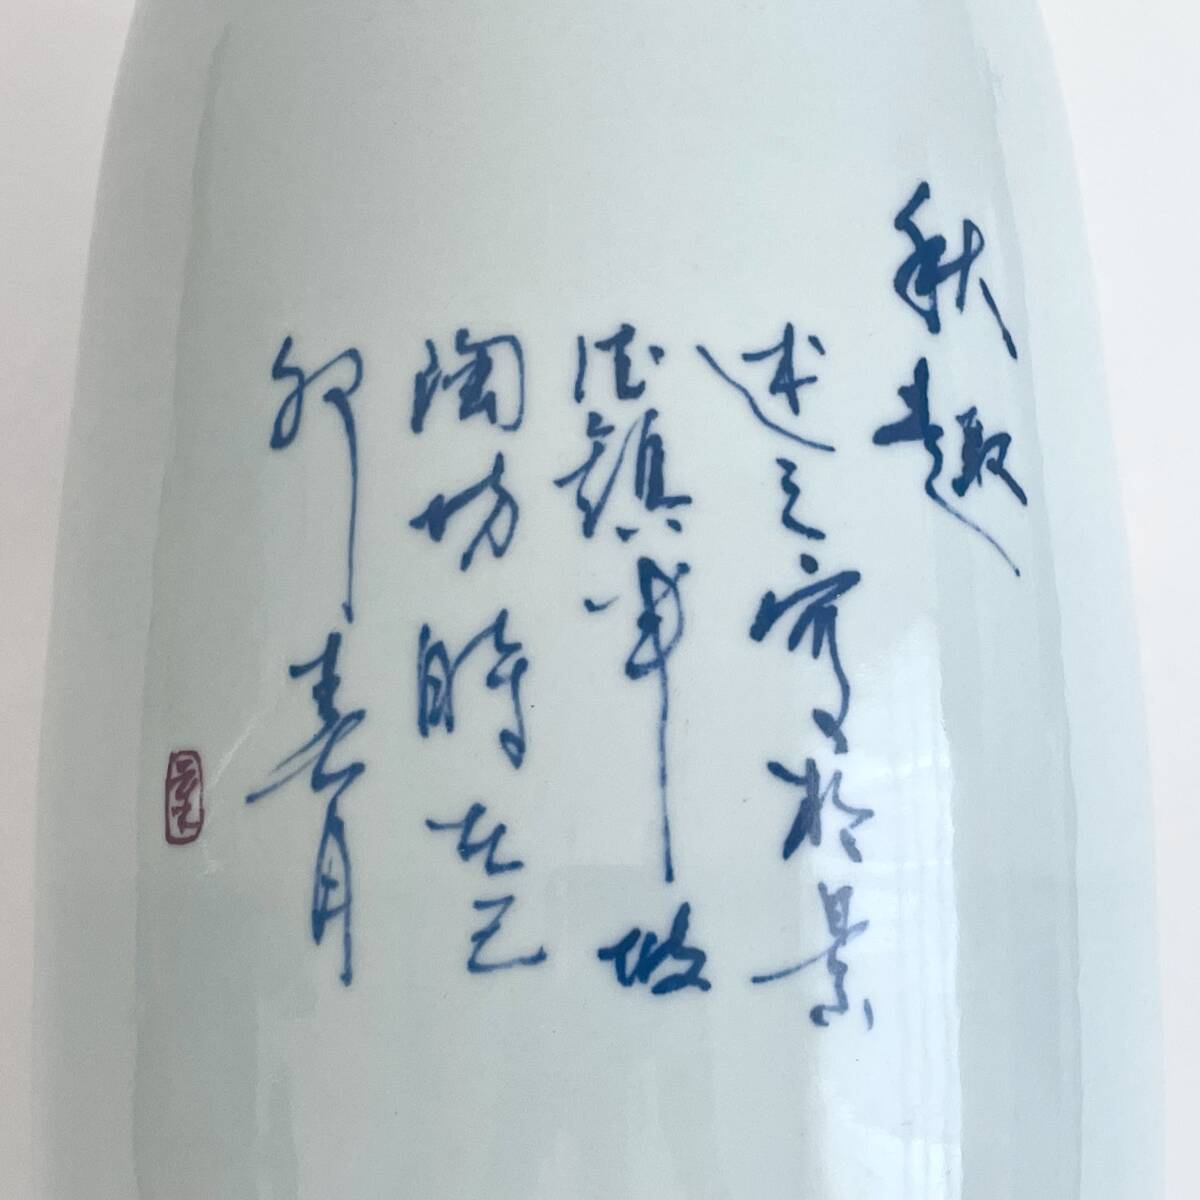 秋趣
述之寫於景
德鎮半坡
陶坊時在己
卯春月